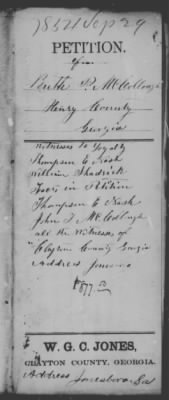 18521 Sep 29
PETITION.
of
P. McCollough
Henry County
Georgia
Witnesses to Loyalty
Thompson C Nash
William Shadrick
in Petition
Thompson C Nash
John T McCollough
all the Witness of
Clayton County Georgia
Address Jonesboro
$877.50
W. G. C. JONES,
CLAYTON COUNTY, GEORGIA.
Address Jonesboro Ga